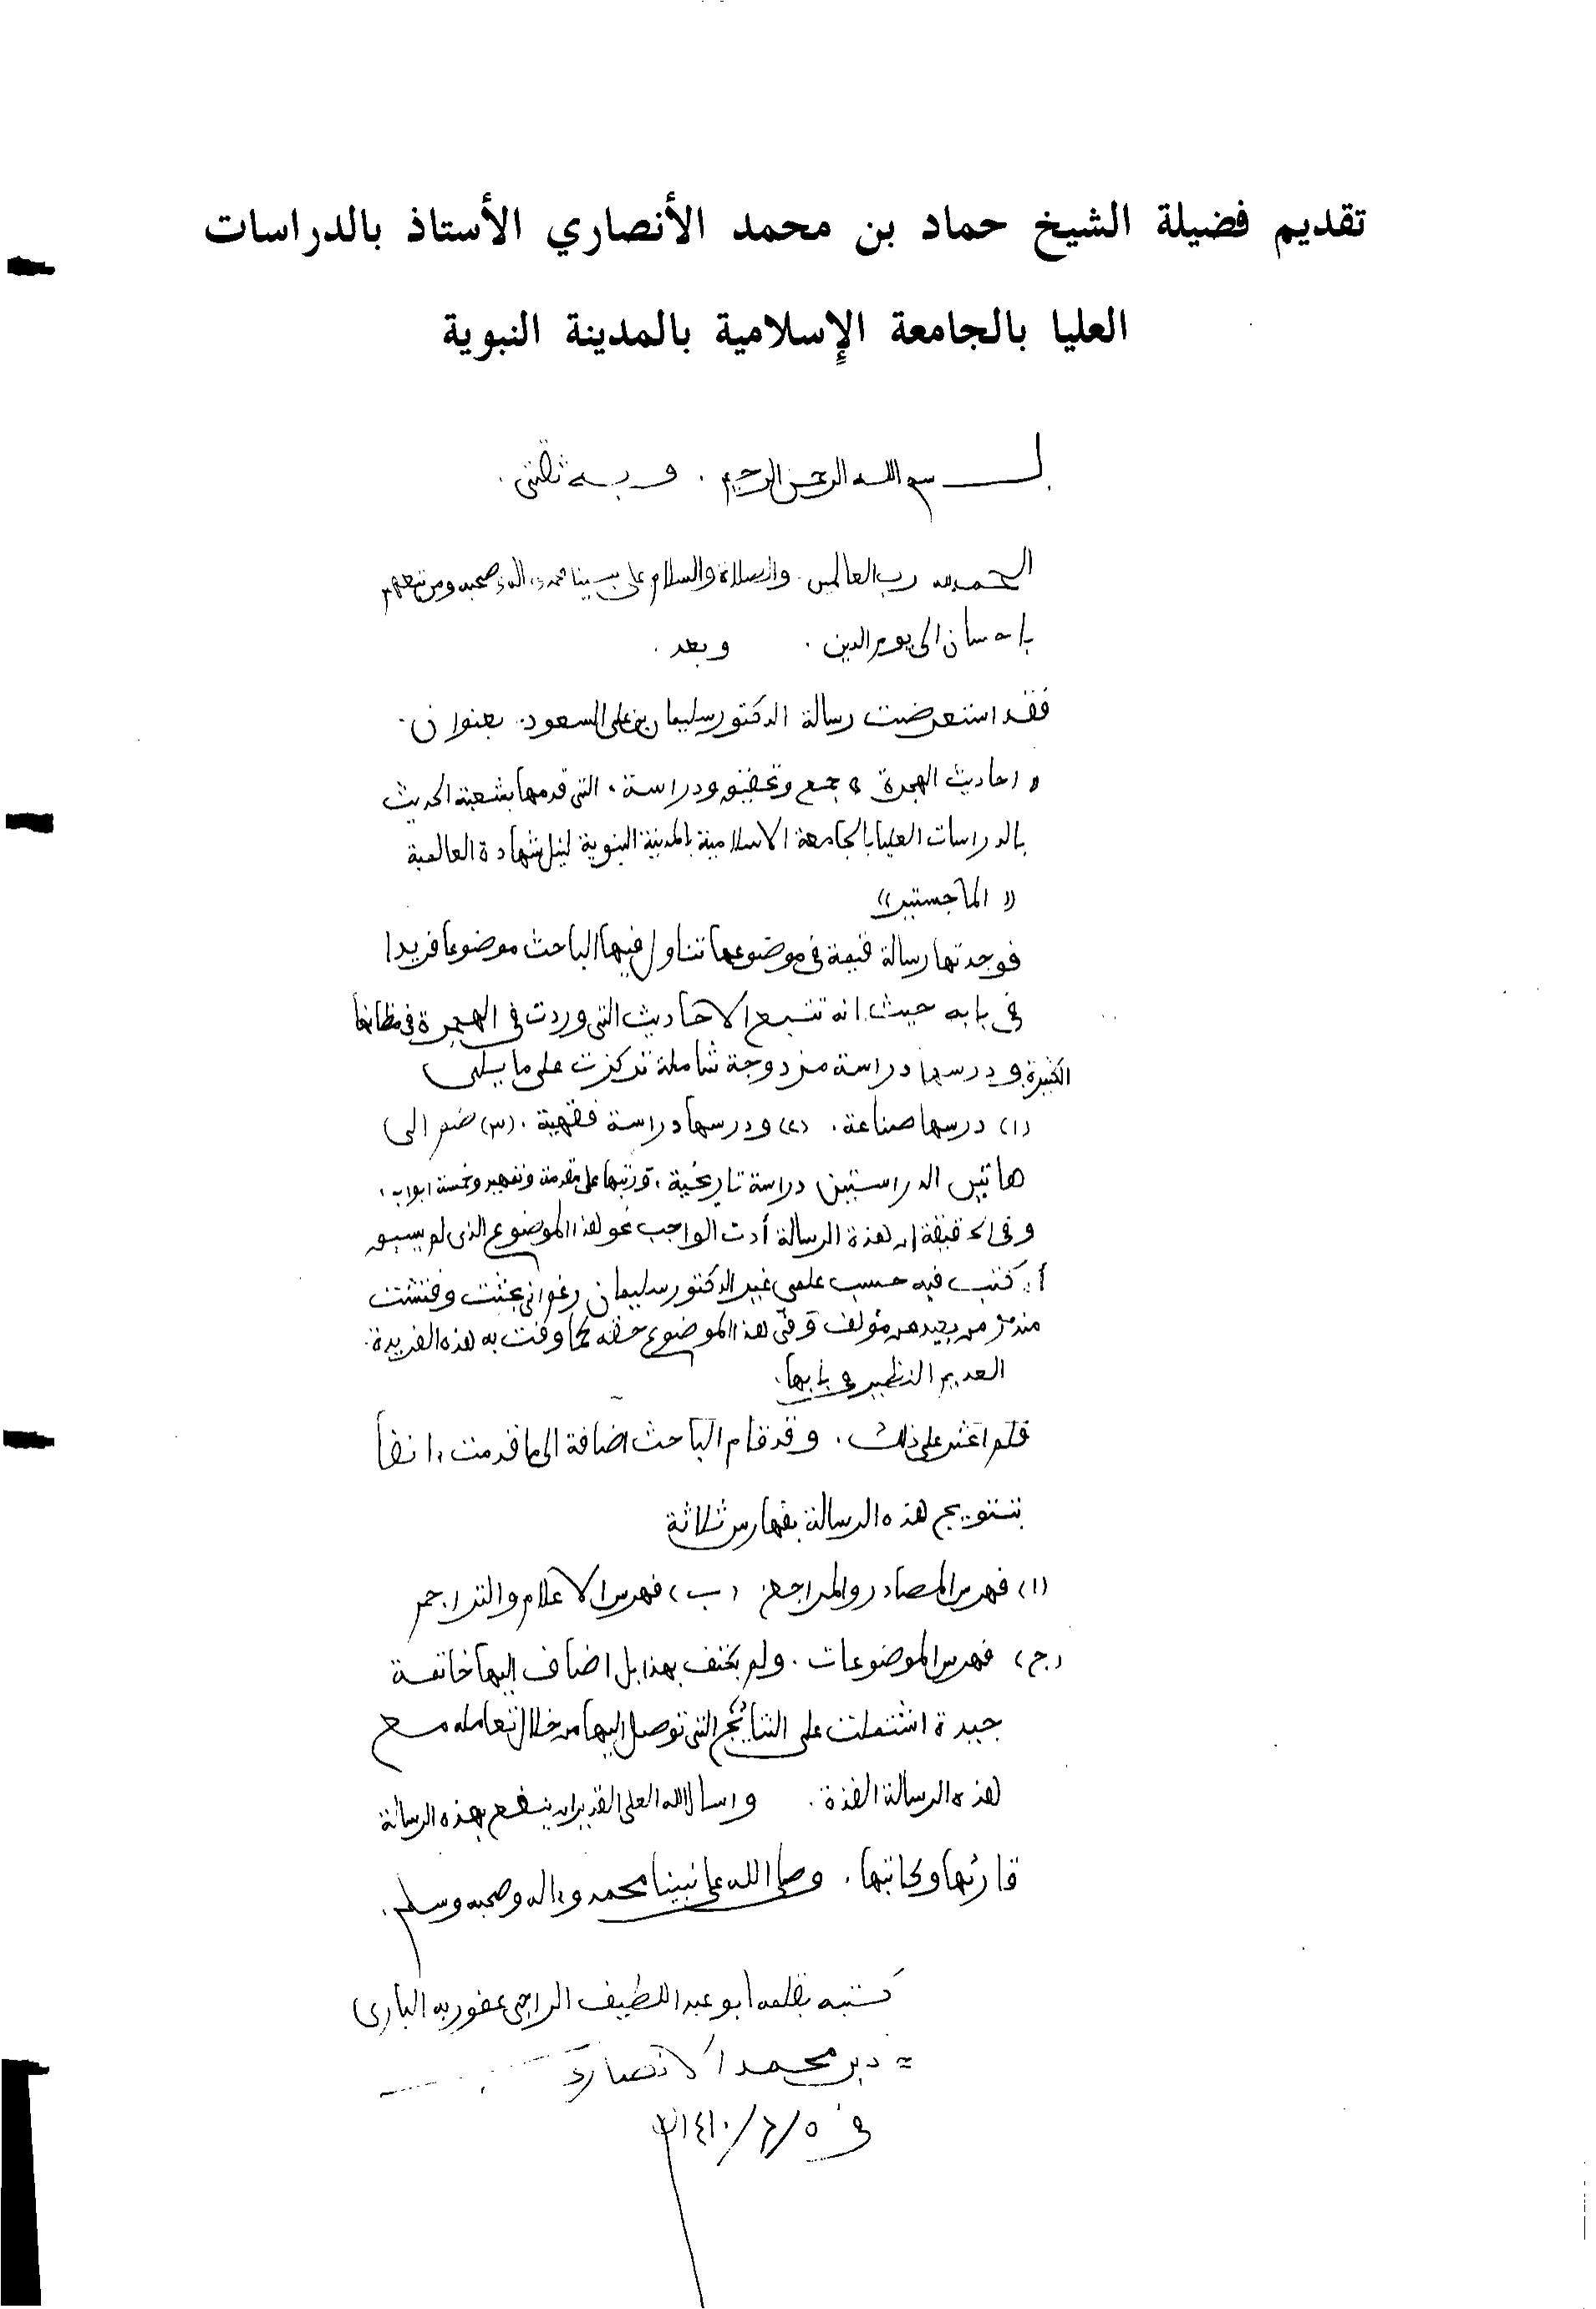 تقديم فضيلة الشيخ حماد بن محمد الأنصاري الأستاذ بالدراسات
العليا بالجامعة الإسلامية بالمدينة النبوية
بسم الله الرحمن الرحيم . وبه ثقتي .
الحمد لله رب العالمين والصلاة والسلام على نبينا محمد وءاله وصحبه ومن تبعهم
بإحسان الى يوم الدين . وبعد .
فقد استعرضت رسالة الدكتور سليمان بن على السعود بعنوان
« احاديث الهجرة » جمع وتحقيق ودراسة . التى قدمها بشعبة الحديث
بالدراسات العليا بالجامعة الاسلامية بالمدينة النبوية لنيل شهادة العالمية
« الماجستير »
فوجدتها رسالة قيمة في موضوعها تناول فيها الباحث موضوعا فريدا
في بابه حيث انه تتبع الاحاديث التى وردت في الهجرة في مظانها
الكثيرة ودرسها دراسة مزدوجة شاملة تركزت على ما يلى
(١) درسها صناعة . (٢) ودرسها دراسة فقهية . (٣) ضم الى
هاتين الدراستين دراسة تاريخية ، ورتبها على مقدمة وتمهيد وخمسة ابواب .
وفى الحقيقة ان هذه الرسالة أدت الواجب نحو هذا الموضوع الذى لم يسبق
أن كتب فيه حسب علمى غير الدكتور سليمان بحثت وفتشت
منذ زمن بعيد عن مؤلف وفى هذا الموضوع حقه كما وفت به هذه الفريدة
العديم النظير في بابها .
فلم اعثر على ذلك . وقد قام الباحث اضافة الى ما قدمت ءانفا
بتتويج هذه الرسالة بفهارس ثلاثة
(ا) فهرس المصادر والمراجع (ب) فهرس الاعلام والتراجم
(ج) فهرس الموضوعات . ولم يكتف بهذا بل اضاف اليها خاتمة
جيدة اشتملت على النتائج التى توصل اليها من خلال تعامله مع
هذه الرسالة الفذة . واسأل الله العلى القدير ان ينفع بهذه الرسالة
قارئها وكاتبها . وصلى الله على نبينا محمد وءاله وصحبه وسلم .
كتبه بقلمه ابو عبد اللطيف الراجى عفو ربه البارى
بن محمد الانصارى
في ٥/٦/١٤١٠هـ